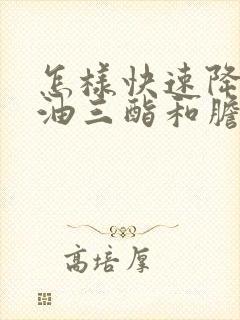 怎样快速降
油三酯和膽
高培厚